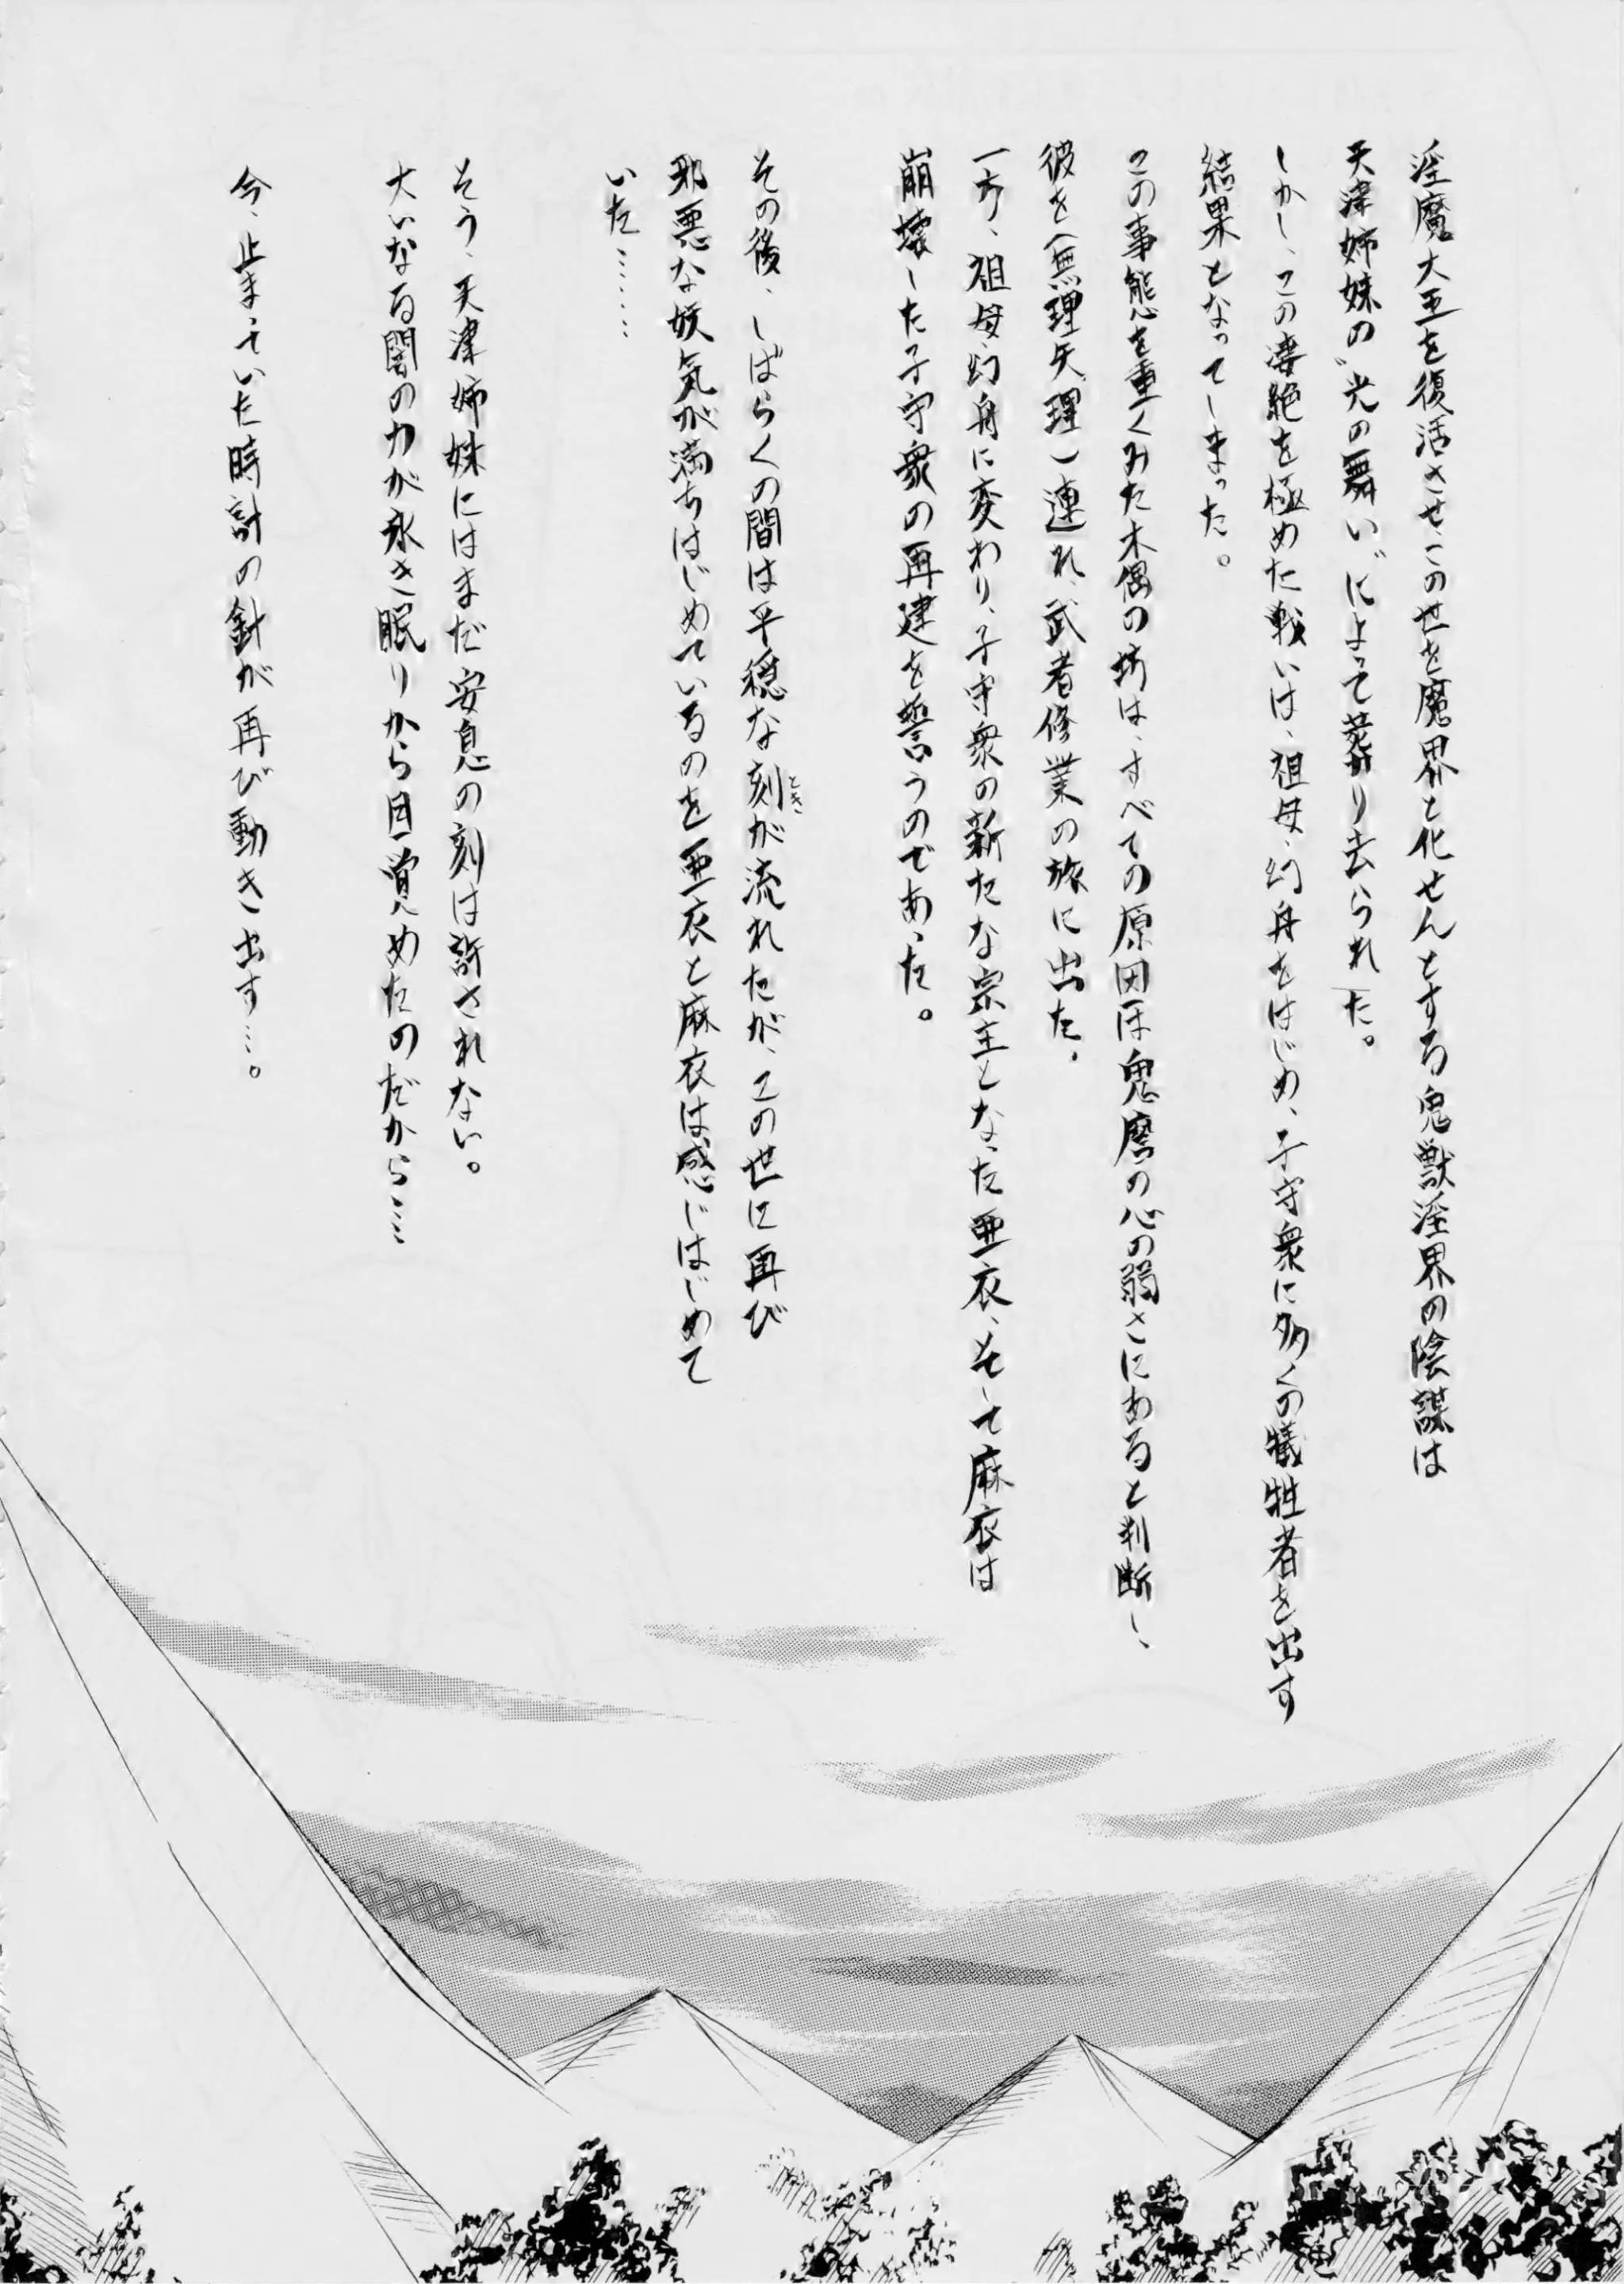 淫魔大王を復活させ、この世を魔界と化せんとする鬼獣淫界の陰謀は
天津姉妹の〝光の舞い〟によって葬り去られた。
しかし、この凄絶を極めた戦いは、祖母・幻舟をはじめ、子守衆に多くの犠牲者を出す
結果となってしまった。
この事態を重くみた木偶の坊は、すべての原因は鬼麿の心の弱さにあると判断し、
彼を(無理矢理)連れ、武者修業の旅に出た。
一方、祖母・幻舟に変わり、子守衆の新たな宗主となった亜衣、そして麻衣は
崩壊した子守衆の再建を誓うのであった。
その後、しばらくの間は平穏な刻が流れたが、この世に再び
とき
邪悪な妖気が満ちはじめているのを亜衣と麻衣は感じはじめて
いた………
そう、天津姉妹にはまだ安息の刻は許されない。
大いなる闇の力が永き眠りから目覚めたのだから……
今、止まっていた時計の針が再び動き出す…。